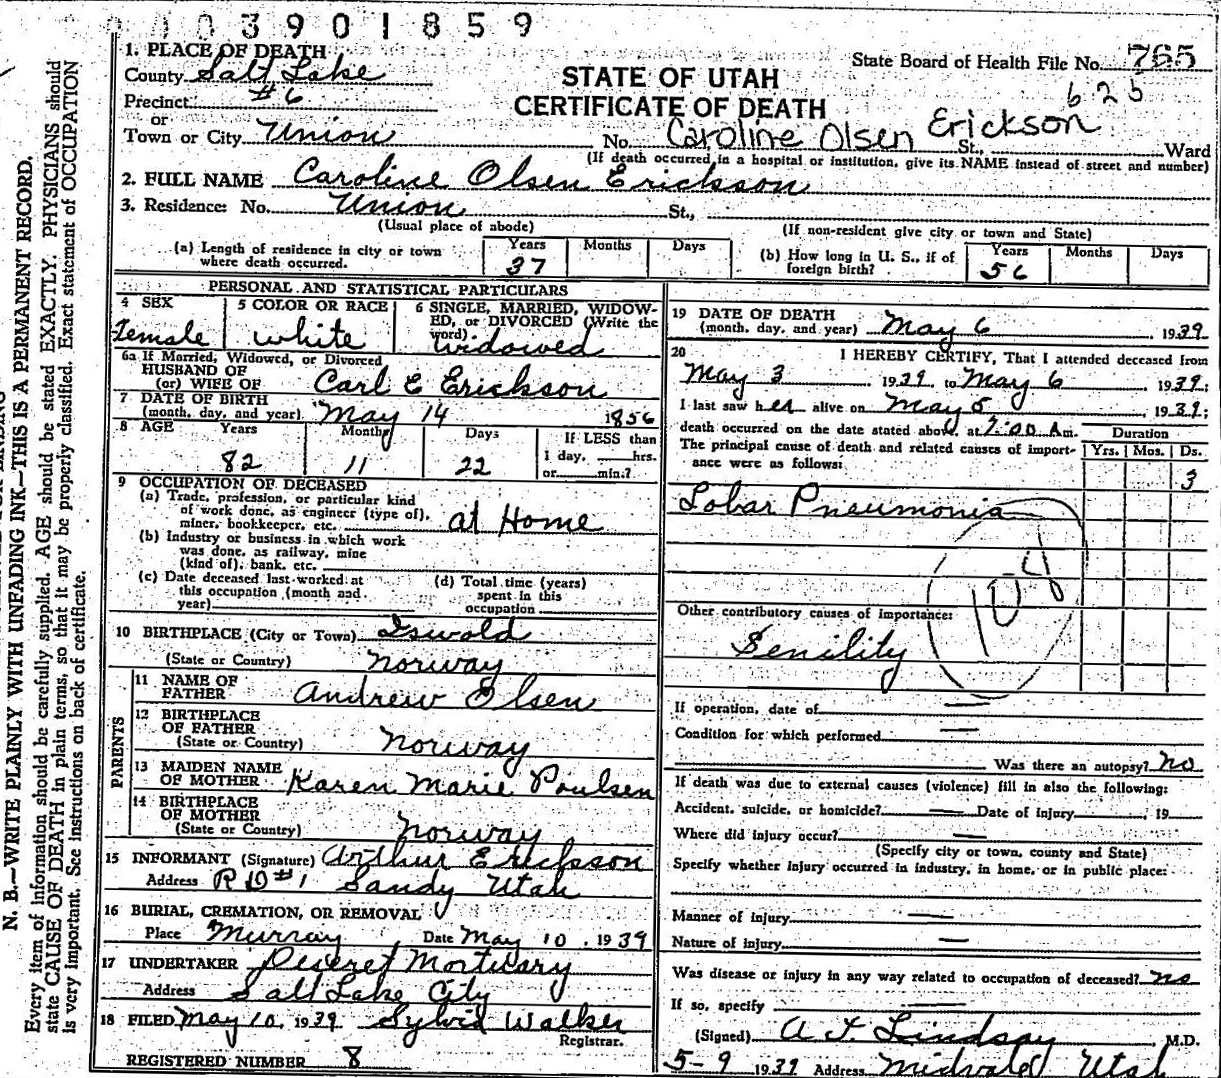 0103901859
1. PLACE OF DEATH
County Salt Lake
Precinct #6
or
Town or City Union
STATE OF UTAH
CERTIFICATE OF DEATH
State Board of Health File No. 765
625
No. Caroline Olsen Erickson St., Ward
(If death occurred in a hospital or institution, give its NAME instead of street and number)
2. FULL NAME Caroline Olsen Erickson
3. Residence: No. Union St.,
(Usual place of abode) (If non-resident give city or town and State)
(a) Length of residence in city or town where death occurred. Years 37 Months Days
(b) How long in U. S., if of foreign birth? Years 56 Months Days
PERSONAL AND STATISTICAL PARTICULARS
4 SEX Female
5 COLOR OR RACE white
6 SINGLE, MARRIED, WIDOWED, or DIVORCED (Write the word) widowed
6a If Married, Widowed, or Divorced
HUSBAND OF
(or) WIFE OF Carl E Erickson
7 DATE OF BIRTH
(month, day, and year) May 14 1856
8 AGE Years 82 Months 11 Days 22 If LESS than
1 day, hrs.
or min.?
9 OCCUPATION OF DECEASED
(a) Trade, profession, or particular kind
of work done, as engineer (type of),
miner, bookkeeper, etc. at Home
(b) Industry or business in which work
was done, as railway, mine
(kind of), bank, etc.
(c) Date deceased last worked at
this occupation (month and
year)
(d) Total time (years)
spent in this
occupation
10 BIRTHPLACE (City or Town) Iswold
(State or Country) Norway
PARENTS
11 NAME OF
FATHER Andrew Olsen
12 BIRTHPLACE
OF FATHER
(State or Country) Norway
13 MAIDEN NAME
OF MOTHER Karen Marie Poulsen
14 BIRTHPLACE
OF MOTHER
(State or Country) Norway
15 INFORMANT (Signature) Arthur Erickson
Address R D #1 Sandy Utah
16 BURIAL, CREMATION, OR REMOVAL
Place Murray Date May 10, 1939
17 UNDERTAKER Deseret Mortuary
Address Salt Lake City
18 FILED May 10, 1939 Sylvia Walker
Registrar.
REGISTERED NUMBER 8
19 DATE OF DEATH
(month, day, and year) May 6, 1939
20 I HEREBY CERTIFY, That I attended deceased from
May 3 1939, to May 6, 1939;
I last saw her alive on May 5, 1939;
death occurred on the date stated above, at 7:00 A m.
The principal cause of death and related causes of importance were as follows:
Duration
Yrs. Mos. Ds.
3
Lobar Pneumonia
108
Other contributory causes of importance:
Senility
If operation, date of —
Condition for which performed —
Was there an autopsy? no
If death was due to external causes (violence) fill in also the following:
Accident, suicide, or homicide? — Date of injury —, 19
Where did injury occur? —
(Specify city or town, county and State)
Specify whether injury occurred in industry, in home, or in public place:
Manner of injury —
Nature of injury —
Was disease or injury in any way related to occupation of deceased? no
If so, specify —
(Signed) A F Lindsay, M.D.
5-9 1939 Address Midvale Utah
N. B.—WRITE PLAINLY WITH UNFADING INK—THIS IS A PERMANENT RECORD.
Every item of information should be carefully supplied. AGE should be stated EXACTLY. PHYSICIANS should
state CAUSE OF DEATH in plain terms, so that it may be properly classified. Exact statement of OCCUPATION
is very important. See instructions on back of certificate.